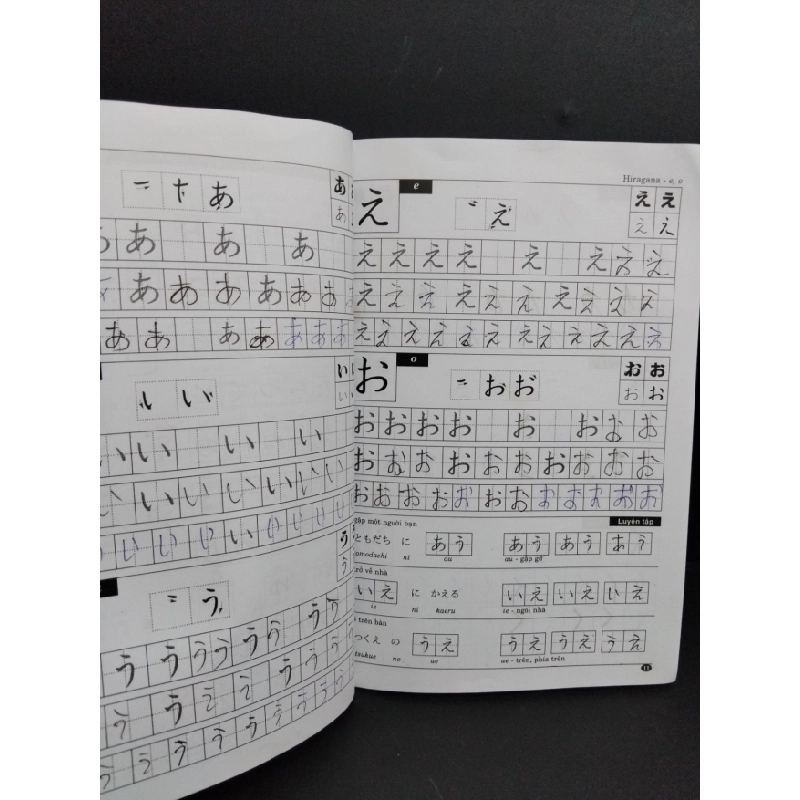 あ
あ
あ あ あ
あ あ あ あ あ あ
あ あ あ あ あ あ あ
い
い
い い い い
い い い い い い い
い い い い い い い
う
う
う
う う う う う う う
う う う う う う う
う う う う う う う
Hiragana - e, o
え e え え え
え え
え え え え え え え え
え え え え え え え え え え
え え え え え え え え え え え え
お o お お お お
お お
お お お お お お お お
お お お お お お お お お お
お お お お お お お お お お お お
gặp một người bạn Luyện tập
ともだち に あう あう あう あう
omodachi ni au au - gặp gỡ
trở về nhà
いえ に かえる いえ いえ いえ
ie ni kaeru ie - ngôi nhà
trên bàn
つくえ の うえ うえ うえ うえ
tsukue no ue ue - trên, phía trên
11